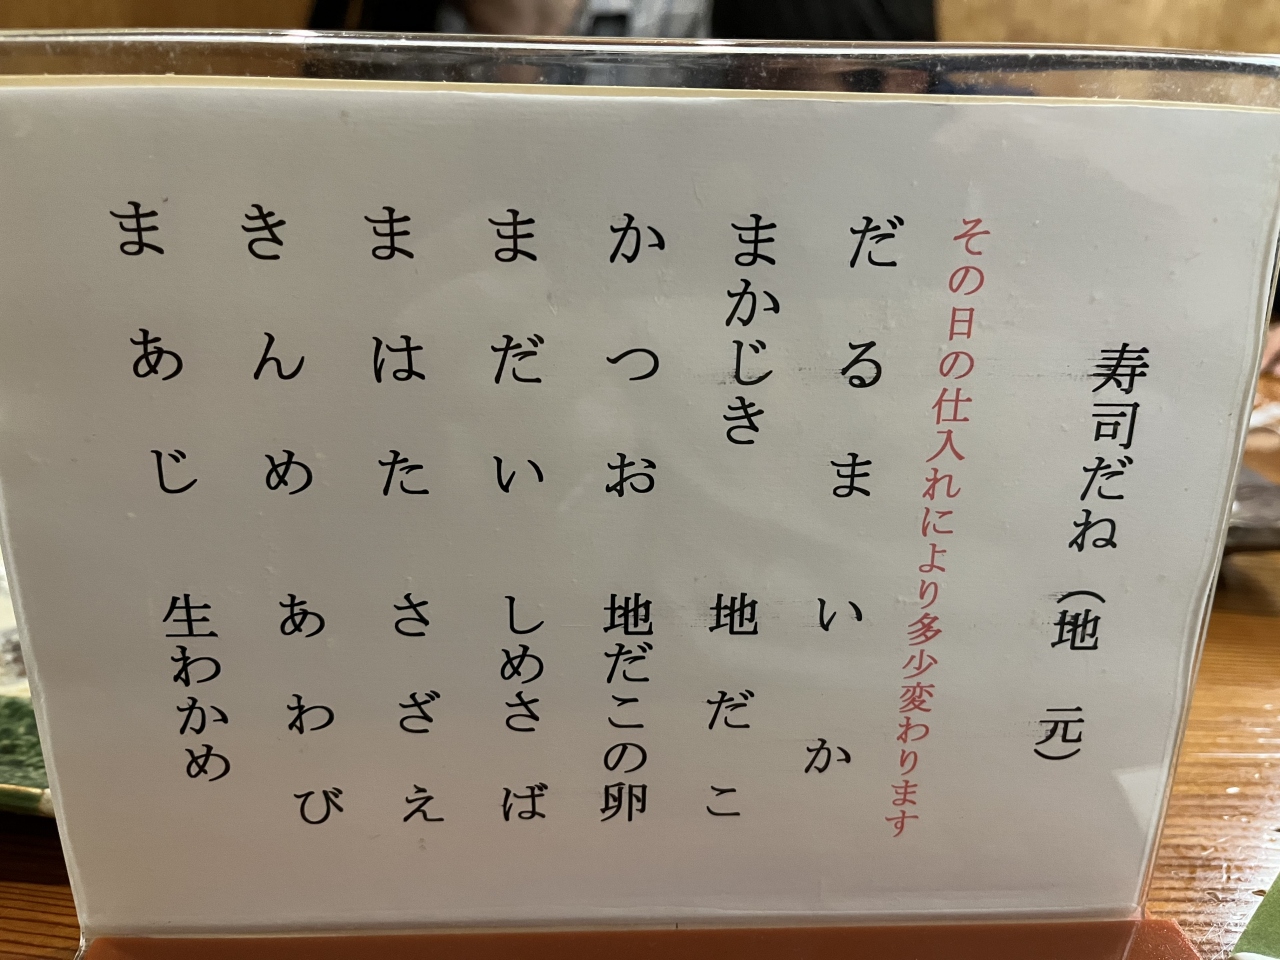 寿司だね（地 元）
その日の仕入れにより多少変わります
だるま
まかじき
かつお
まだい
まはた
きんめ
まあじ
いか
地だこ
地だこの卵
しめさば
さざえ
あわび
生わかめ